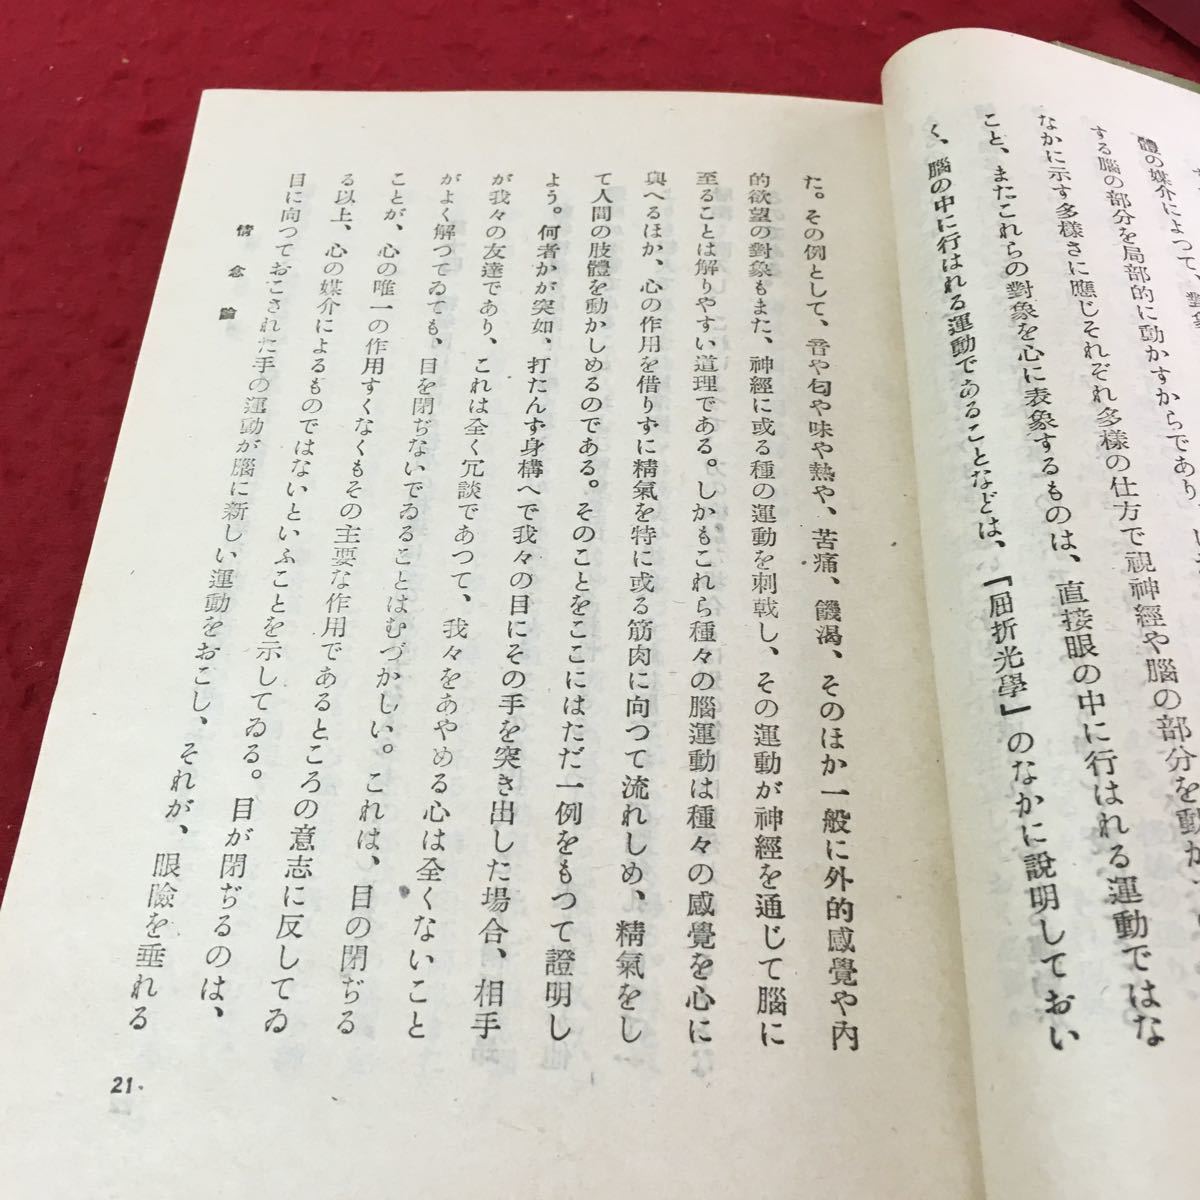 體の媒介によつて、對象
する腦の部分を局部的に動かすからであり
なかに示す多樣さに應じそれぞれ多樣の仕方で視神經や腦の部分を動か
こと、またこれらの對象を心に表象するものは、直接眼の中に行はれる運動ではな
く、腦の中に行はれる運動であることなどは、『屈折光學』のなかに說明しておい
た。その例として、音や匂や味や熱や、苦痛、饑渴、そのほか一般に外的感覺や內
的欲望の對象もまた、神經に或る種の運動を刺戟し、その運動が神經を通じて腦に
至ることは解りやすい道理である。しかもこれら種々の腦運動は種々の感覺を心に
與へるほか、心の作用を借りずに精氣を特に或る筋肉に向つて流れしめ、精氣をし
て人間の肢體を動かしめるのである。そのことをここにはただ一例をもつて證明し
よう。何者かが突如、打たんず身構へで我々の目にその手を突き出した場合、相手
が我々の友達であり、これは全く冗談であつて、我々をあやめる心は全くないこと
がよく解つてゐても、目を閉ぢないでゐることはむづかしい。これは、目の閉ぢる
ことが、心の唯一の作用すくなくもその主要な作用であるところの意志に反してゐ
る以上、心の媒介によるものではないといふことを示してゐる。目が閉ぢるのは、
目に向つておこされた手の運動が腦に新しい運動をおこし、それが、眼瞼を垂れる
情念論
21